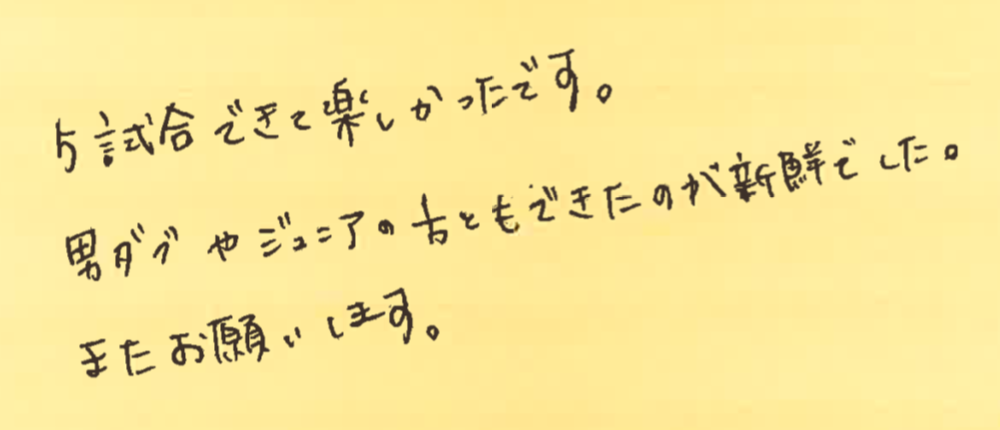 5試合できて楽しかったです。
男ダブやジュニアの方ともできたのが新鮮でした。
またお願いします。